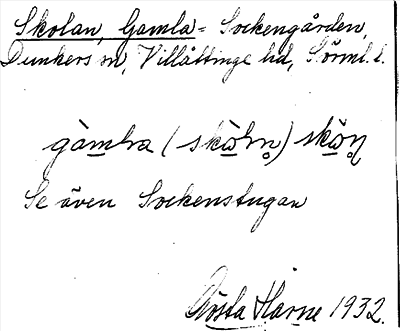 Skolan, Gamla = Sockengården,
Dunkers sn, Villåttinge hd, Sörml. l.
gàmla (skòln̥) skòn̥
Se även Sockenstugan
Gösta Härne 1932.